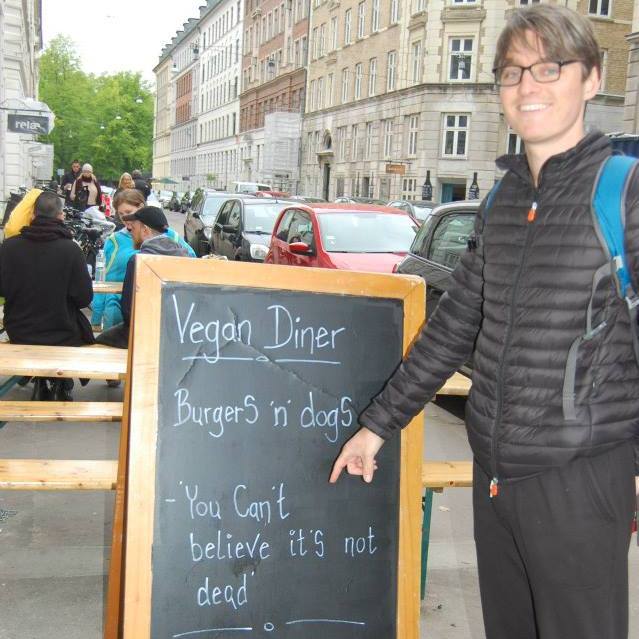 relæ
Vegan Diner
Burgers 'n' dogs
-'You Can't
believe it's not
dead'